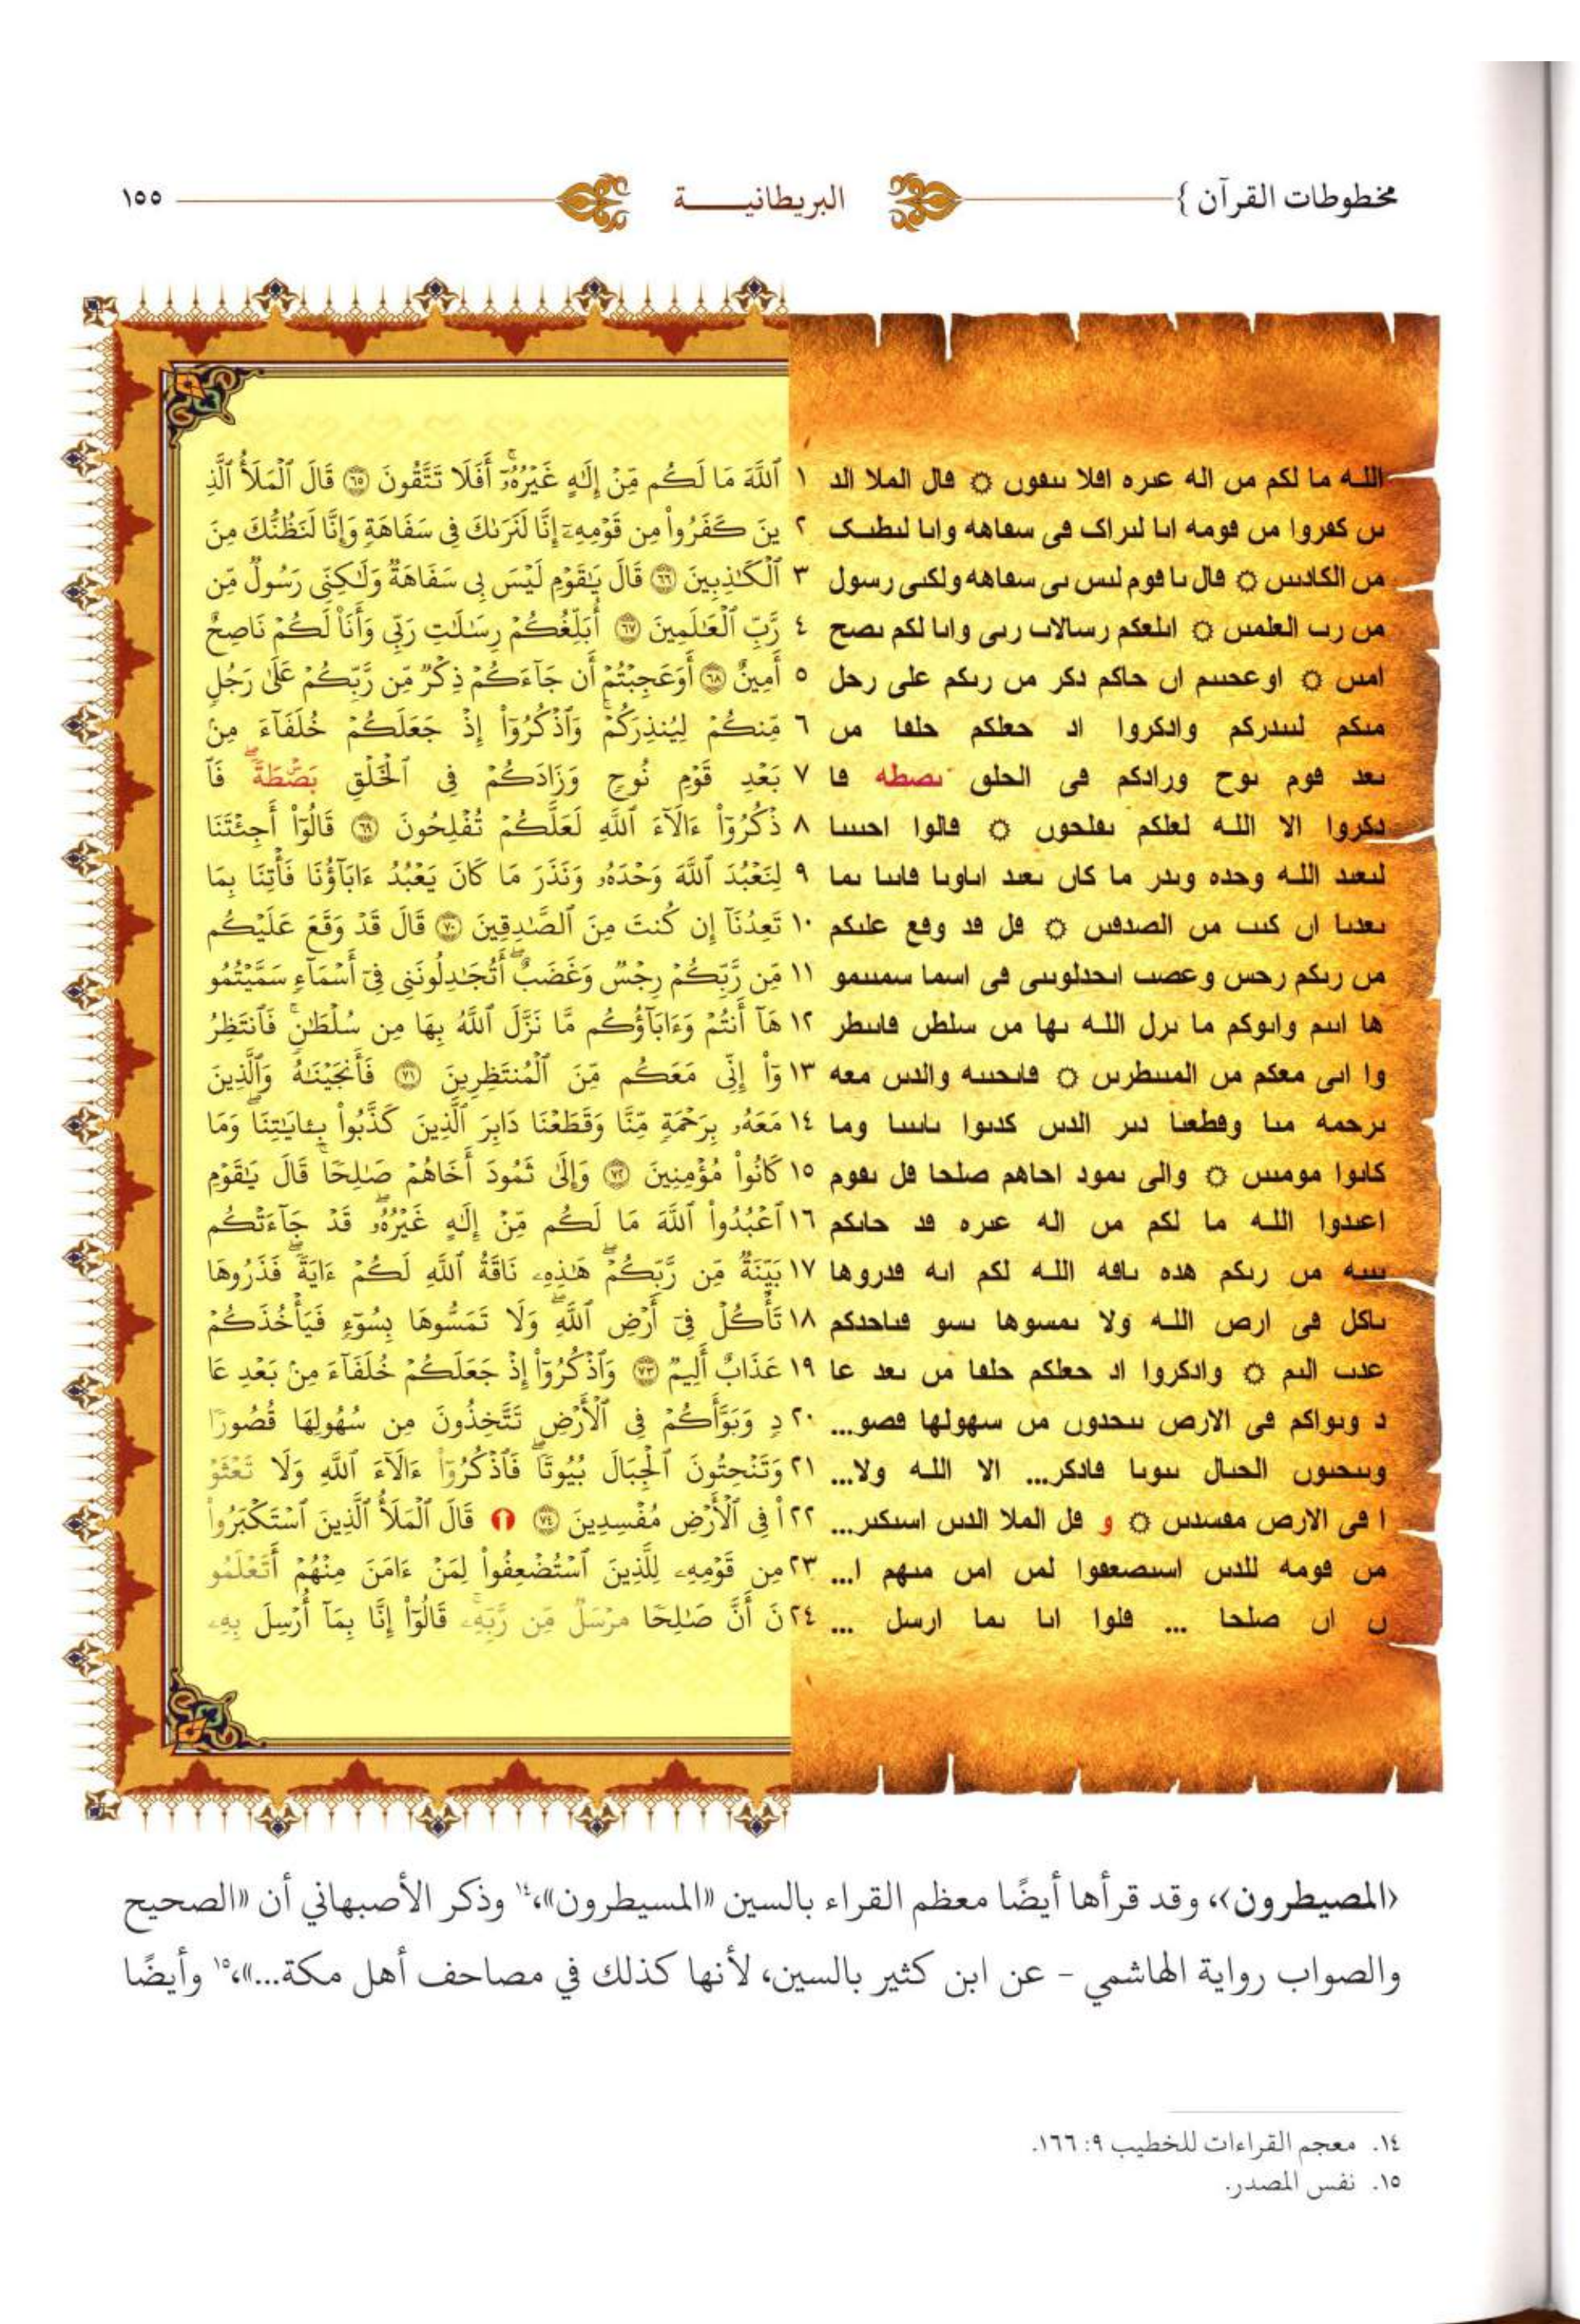 مخطوطات القرآن } البريطانيـــــة ١٥٥
اللـه ما لكم مں اله عىره افلا ىىڡوں ۝ ڡال الملا الد ١ ٱللَّهَ مَا لَكُم مِّنۡ إِلَٰهٍ غَيۡرُهُۥٓۚ أَفَلَا تَتَّقُونَ ٦٥ قَالَ ٱلۡمَلَأُ ٱلَّذِ
ىں كڡروا مں ڡومه اىا لىراک ڡى سڡاهه واىا لىطىک ٢ ينَ كَفَرُواْ مِن قَوۡمِهِۦٓ إِنَّا لَنَرَىٰكَ فِى سَفَاهَةٍ وَإِنَّا لَنَظُنُّكَ مِنَ
مں الكادىىں ۝ ڡال ىا ڡوم لىس ىى سڡاهه ولكىى رسول ٣ ٱلۡكَٰذِبِينَ ٦٦ قَالَ يَٰقَوۡمِ لَيۡسَ بِى سَفَاهَةٌ وَلَٰكِنِّى رَسُولٌ مِّن
مں رٮ العلمىں ۝ اىلعكم رسالاٮ رىى واىا لكم ىصح ٤ رَّبِّ ٱلۡعَٰلَمِينَ ٦٧ أُبَلِّغُكُمۡ رِسَٰلَٰتِ رَبِّى وَأَنَا۠ لَكُمۡ نَاصِحٌ
امىں ۝ اوعحىىم اں حاكم دكر مں رىكم على رحل ٥ أَمِينٌ ٦٨ أَوَعَجِبۡتُمۡ أَن جَآءَكُمۡ ذِكۡرٌ مِّن رَّبِّكُمۡ عَلَىٰ رَجُلٍ
مىكم لىىدركم وادكروا اد حعلكم حلڡا مں ٦ مِّنكُمۡ لِيُنذِرَكُمۡۚ وَٱذۡكُرُوٓاْ إِذۡ جَعَلَكُمۡ خُلَفَآءَ مِنۢ
ىعد ڡوم ىوح ورادكم ڡى الحلٯ ىصطه ڡا ٧ بَعۡدِ قَوۡمِ نُوحٍ وَزَادَكُمۡ فِى ٱلۡخَلۡقِ بَصۜۡطَةًۖ فَٱ
دكروا الا اللـه لعلكم ىڡلحوں ۝ ڡالوا احىىىا ٨ ذۡكُرُوٓاْ ءَالَآءَ ٱللَّهِ لَعَلَّكُمۡ تُفۡلِحُونَ ٦٩ قَالُوٓاْ أَجِئۡتَنَا
لىعىد اللـه وحده وىدر ما كاں ىعىد اىاوىا ڡاىىا ىما ٩ لِنَعۡبُدَ ٱللَّهَ وَحۡدَهُۥ وَنَذَرَ مَا كَانَ يَعۡبُدُ ءَابَآؤُنَا فَأۡتِنَا بِمَا
ىعدىا اں كىٮ مں الصدڡىں ۝ ڡل ڡد وڡع علىكم ١٠ تَعِدُنَآ إِن كُنتَ مِنَ ٱلصَّٰدِقِينَ ٧٠ قَالَ قَدۡ وَقَعَ عَلَيۡكُم
مں رىكم رحس وعصٮ اىحدلوىىى ڡى اسما سمىىمو ١١ مِّن رَّبِّكُمۡ رِجۡسٌ وَغَضَبٌۖ أَتُجَٰدِلُونَنِى فِىٓ أَسۡمَآءٍ سَمَّيۡتُمُو
ها اىىم واىوكم ما ىرل اللـه ىها مں سلطں ڡاىىطر ١٢ هَآ أَنتُمۡ وَءَابَآؤُكُم مَّا نَزَّلَ ٱللَّهُ بِهَا مِن سُلۡطَٰنٍۚ فَٱنتَظِرُ
وا اىى معكم مں المىىطرىں ۝ ڡاىحىىه والدىں معه ١٣ وٓاْ إِنِّى مَعَكُم مِّنَ ٱلۡمُنتَظِرِينَ ٧١ فَأَنجَيۡنَٰهُ وَٱلَّذِينَ
ىرحمه مىا وڡطعىا دىر الدىں كدىوا ىاىىىا وما ١٤ مَعَهُۥ بِرَحۡمَةٍ مِّنَّا وَقَطَعۡنَا دَابِرَ ٱلَّذِينَ كَذَّبُواْ بِـَٔايَٰتِنَاۖ وَمَا
كاىوا مومىىں ۝ والى ىمود احاهم صلحا ڡل ىڡوم ١٥ كَانُواْ مُؤۡمِنِينَ ٧٢ وَإِلَىٰ ثَمُودَ أَخَاهُمۡ صَٰلِحًاۚ قَالَ يَٰقَوۡمِ
اعىدوا اللـه ما لكم مں اله عىره ڡد حاىكم ١٦ ٱعۡبُدُواْ ٱللَّهَ مَا لَكُم مِّنۡ إِلَٰهٍ غَيۡرُهُۥۖ قَدۡ جَآءَتۡكُم
ىىىه مں رىكم هده ىاڡه اللـه لكم اىه ڡدروها ١٧ بَيِّنَةٌ مِّن رَّبِّكُمۡۖ هَٰذِهِۦ نَاقَةُ ٱللَّهِ لَكُمۡ ءَايَةًۖ فَذَرُوهَا
ىاكل ڡى ارص اللـه ولا ىمسوها ىسو ڡىاحدكم ١٨ تَأۡكُلۡ فِىٓ أَرۡضِ ٱللَّهِۖ وَلَا تَمَسُّوهَا بِسُوٓءٍ فَيَأۡخُذَكُمۡ
عدٮ الىم ۝ وادكروا اد حعلكم حلڡا مں ىعد عا ١٩ عَذَابٌ أَلِيمٌ ٧٣ وَٱذۡكُرُوٓاْ إِذۡ جَعَلَكُمۡ خُلَفَآءَ مِنۢ بَعۡدِ عَا
د وىواكم ڡى الارص ىىحدوں مں سهولها ڡصو... ٢٠ دٍ وَبَوَّأَكُمۡ فِى ٱلۡأَرۡضِ تَتَّخِذُونَ مِن سُهُولِهَا قُصُورًا
وىىحىوں الحىال ىىوىا ڡادكر... الا اللـه ولا... ٢١ وَتَنۡحِتُونَ ٱلۡجِبَالَ بُيُوتًاۖ فَٱذۡكُرُوٓاْ ءَالَآءَ ٱللَّهِ وَلَا تَعۡثَوۡ
ا ڡى الارص مڡسدىں ۝ و ڡل الملا الدىں اسىكىر... ٢٢ اْ فِى ٱلۡأَرۡضِ مُفۡسِدِينَ ٧٤ قَالَ ٱلۡمَلَأُ ٱلَّذِينَ ٱسۡتَكۡبَرُواْ
مں ڡومه للدىں اسىصعڡوا لمں امں مىهم ا... ٢٣ مِن قَوۡمِهِۦ لِلَّذِينَ ٱسۡتُضۡعِفُواْ لِمَنۡ ءَامَنَ مِنۡهُمۡ أَتَعۡلَمُو
ں اں صلحا ... ڡلوا اىا ىما ارسل ... ٢٤ نَ أَنَّ صَٰلِحًا مُّرۡسَلٌ مِّن رَّبِّهِۦۚ قَالُوٓاْ إِنَّا بِمَآ أُرۡسِلَ بِهِۦ
‹المصيطرون›، وقد قرأها أيضًا معظم القراء بالسين «المسيطرون»،١٤ وذكر الأصبهاني أن «الصحيح
والصواب رواية الهاشمي - عن ابن كثير بالسين، لأنها كذلك في مصاحف أهل مكة...»،١٥ وأيضًا
١٤. معجم القراءات للخطيب ٩: ١٦٦.
١٥. نفس المصدر.